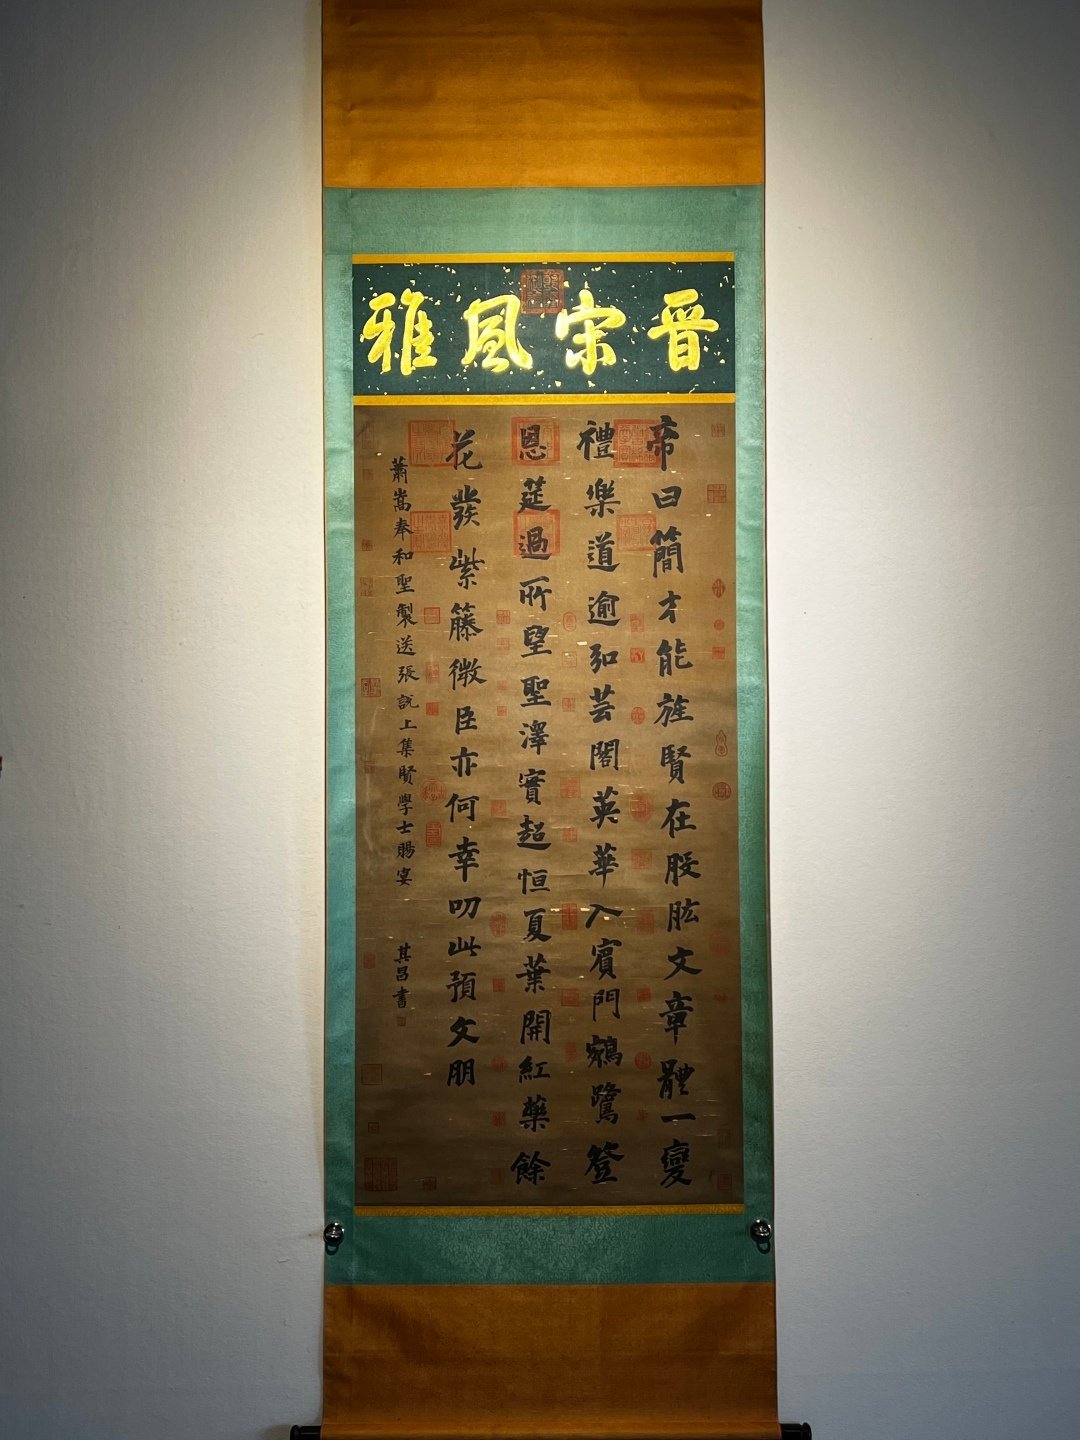 晋宋風雅
帝曰簡才能旌賢在股肱文章體一變
禮樂道逾弘芸閣英華入賓門鵷鷺登
恩筵過所望聖澤實超恒夏葉開紅藥餘
花發紫藤微臣亦何幸叨此預文朋
蕭嵩奉和聖製送張說上集賢學士賜宴
其昌書